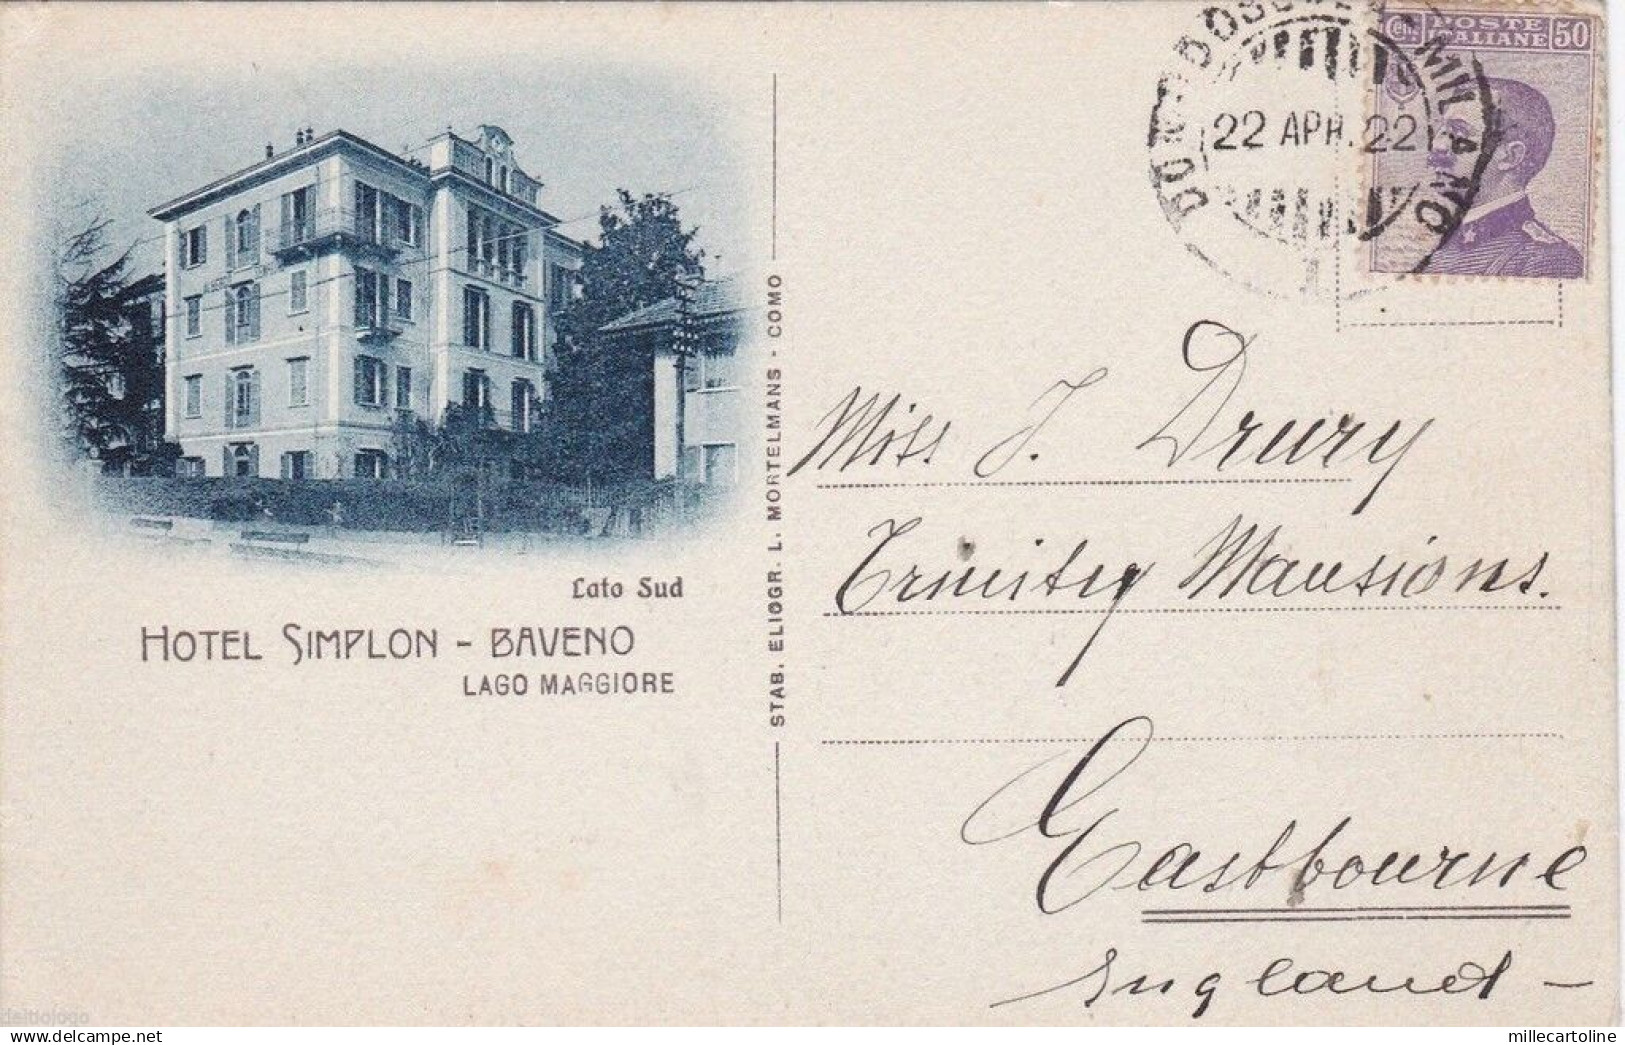 Cent. POSTE ITALIANE 50
DOMODOSSOLA - MILANO
22 APR. 22
Miss J. Drury
Trinity Mansions.
Eastbourne
England -
Lato Sud
HOTEL SIMPLON - BAVENO
LAGO MAGGIORE
STAB. ELIOGR. L. MORTELMANS - COMO
deltiologo
millecartoline